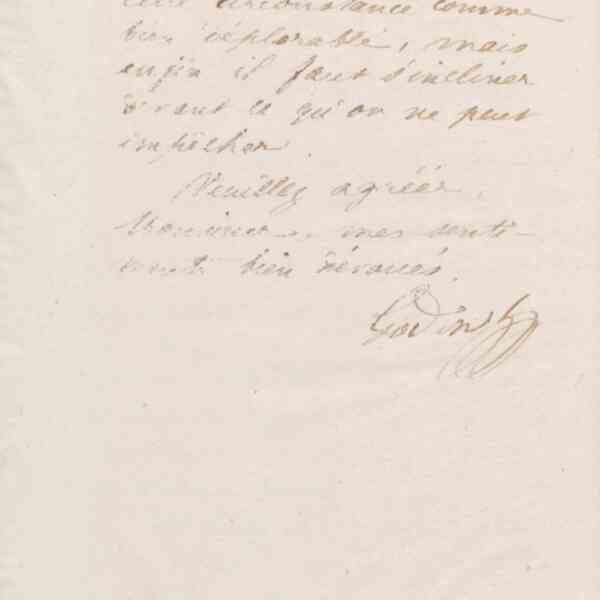 cette circonstance comme
bien déplorable, mais
enfin il faut s'incliner
devant ce qu'on ne peut
empêcher.
Veuillez agréer,
Monsieur, mes senti-
ments bien dévoués.
Godin